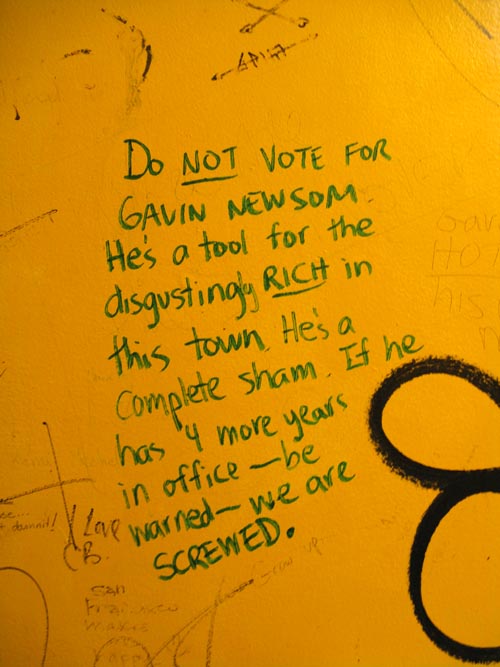 Do NOT VOTE FOR
GAVIN NEWSOM.
He's a tool for the
disgustingly RICH in
this town. He's a
complete sham. If he
has 4 more years
in office – be
warned – we are
SCREWED.
damnit!
Love
CB.
Grow up
San
Francisco
makes
HOT
his